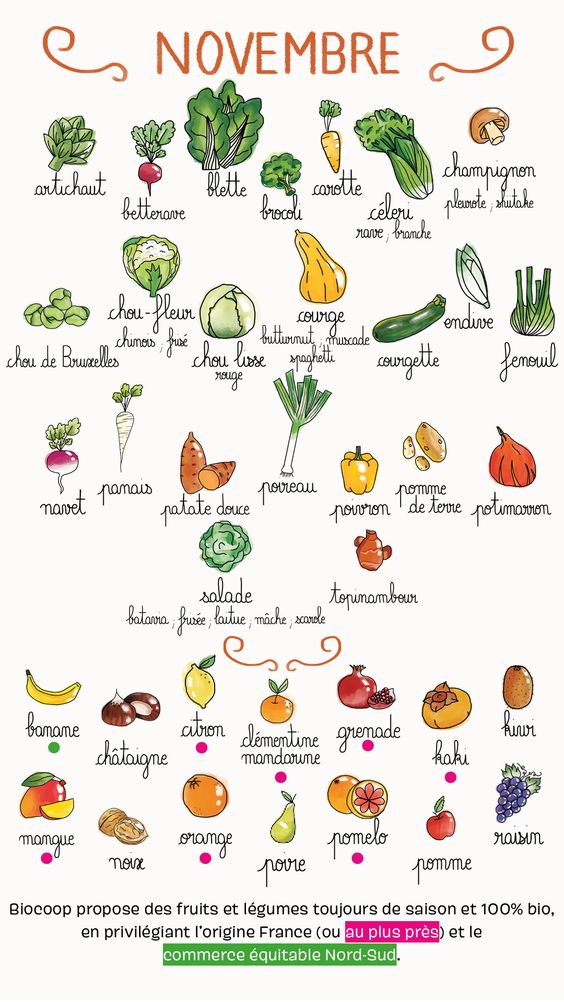 NOVEMBRE
artichaut
betterave
blette
brocoli
carotte
céleri
rave ; branche
champignon
pleurote ; shitake
chou de Bruxelles
chou-fleur
chinois ; frisé
chou lisse
rouge
courge
butturnut ; muscade
spaghetti
courgette
endive
fenouil
navet
panais
patate douce
poireau
poivron
pomme
de terre
potimarron
salade
batavia ; frisée ; laitue ; mâche ; scarole
topinambour
banane
châtaigne
citron
clémentine
mandarine
grenade
kaki
kiwi
mangue
noix
orange
poire
pomelo
pomme
raisin
Biocoop propose des fruits et légumes toujours de saison et 100% bio,
en privilégiant l'origine France (ou au plus près) et le
commerce équitable Nord-Sud.